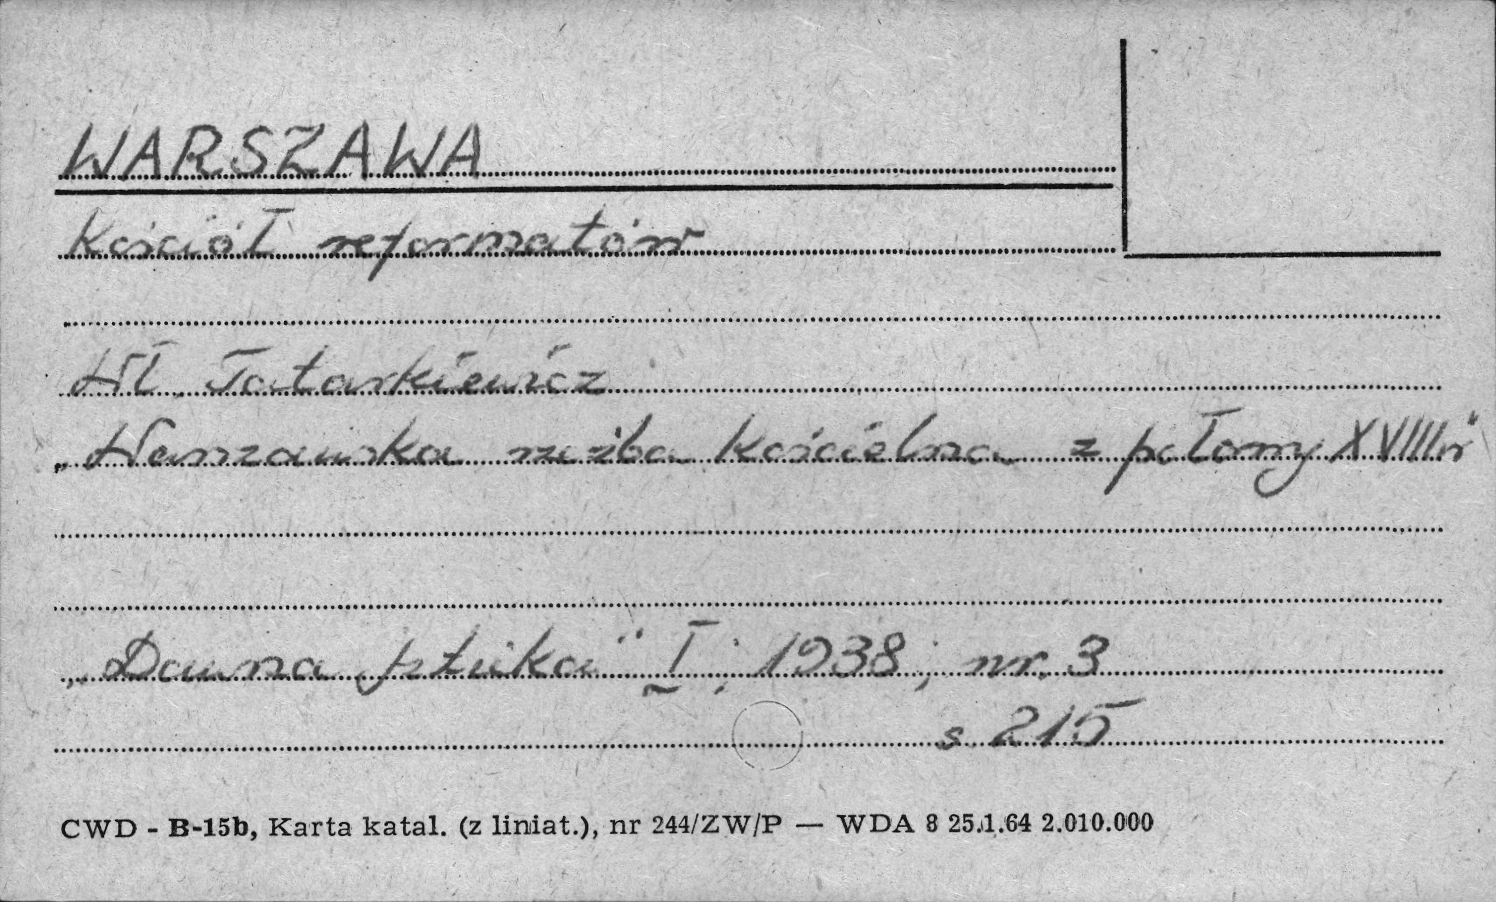 WARSZAWA
Kościół reformatów
Wł. Tatarkiewicz
„Warszawska rzeźba kościelna z połowy XVIII w"
„Dawna sztuka" I; 1938; nr. 3
s. 215
CWD - B-15b, Karta katal. (z liniat.), nr 244/ZW/P — WDA 8 25.1.64 2.010.000